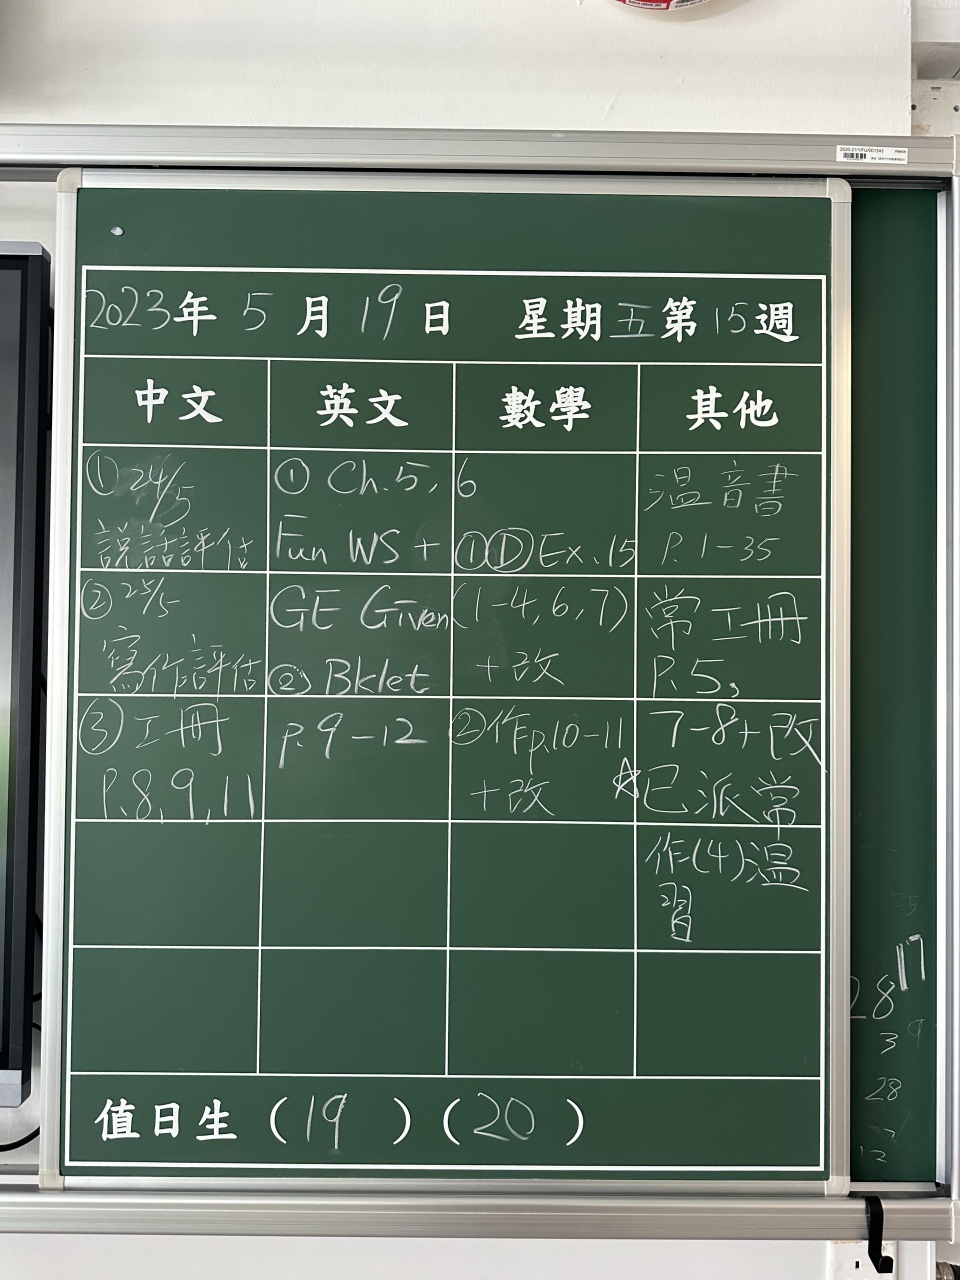 2020-21/1/FU/001343
2023年 5 月 19 日 星期五第15週
中文 英文 數學 其他
① 24/5
說話評估
② 25/5
寫作評估
③ 工冊
P.8,9,11
① Ch.5, 6
Fun WS +
GE Given
② Bklet
p.9-12
①Ⓓ Ex.15
(1-4,6,7)
+改
②作p.10-11
+改
温音書
P.1-35
常工冊
P.5,
7-8+改
☆已派常
作(4)温
習
值日生 (19) (20)
25
17
28
3 9
28
12